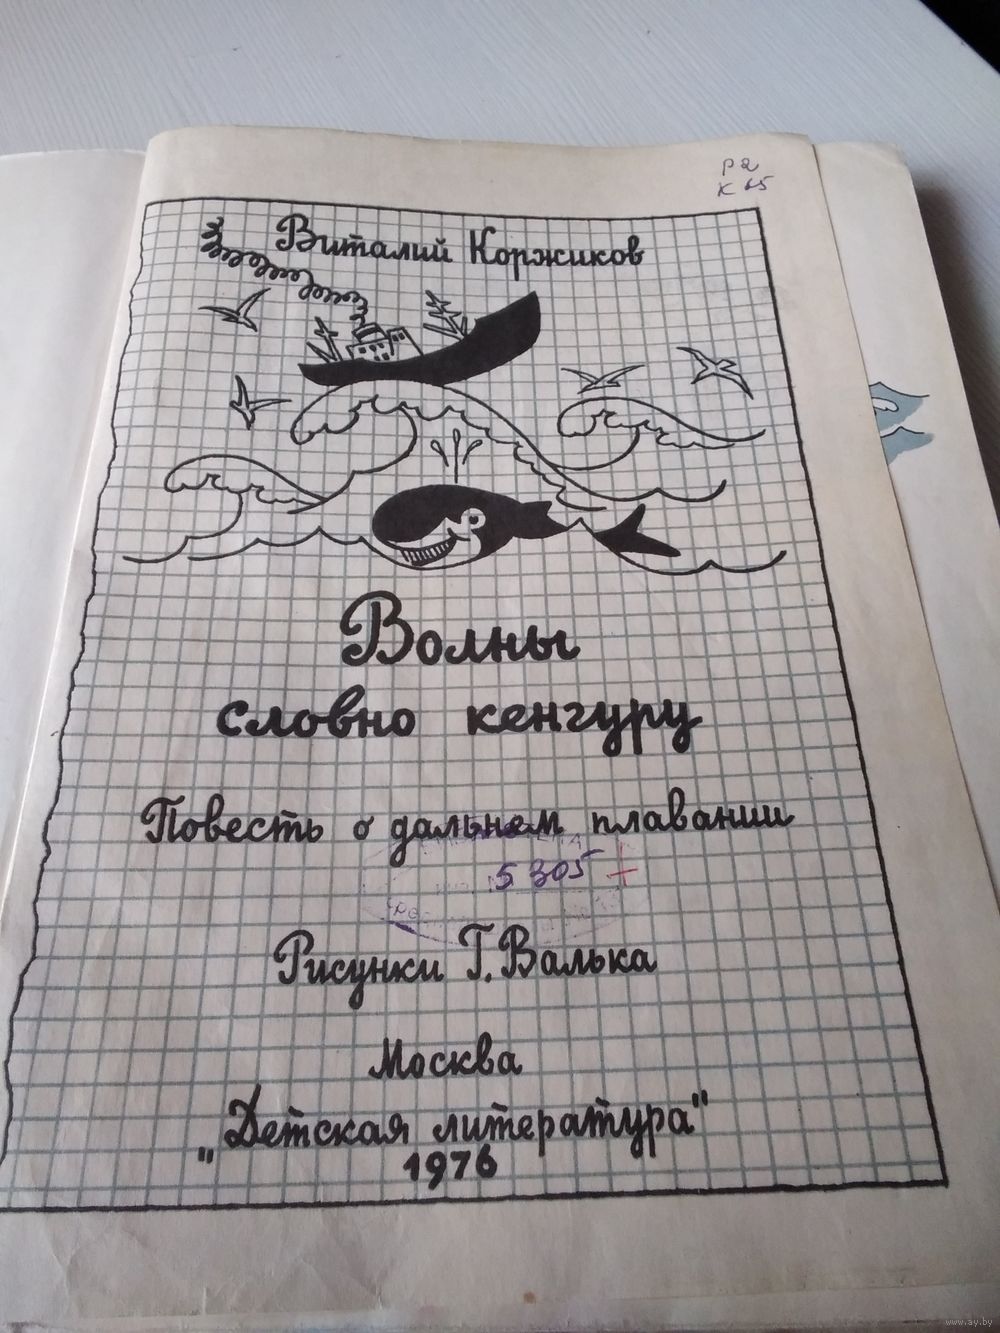 Р2
К 65
Виталий Коржиков
Волны
словно кенгуру
Повесть о дальнем плавании
5305 +
Рисунки Г. Валька
Москва
„Детская литература"
1976
www.ay.by